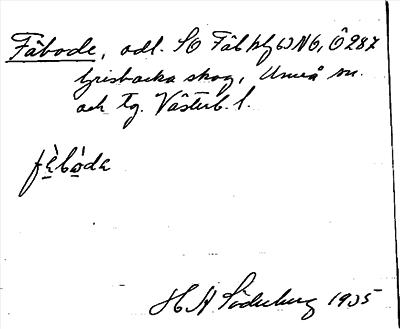 Fäbode, odl. SO Fäbhlj
Grisbacka skog, Umeå sn.
och tg. Västerb. l.
fèbòda
H A Söderberg 1935